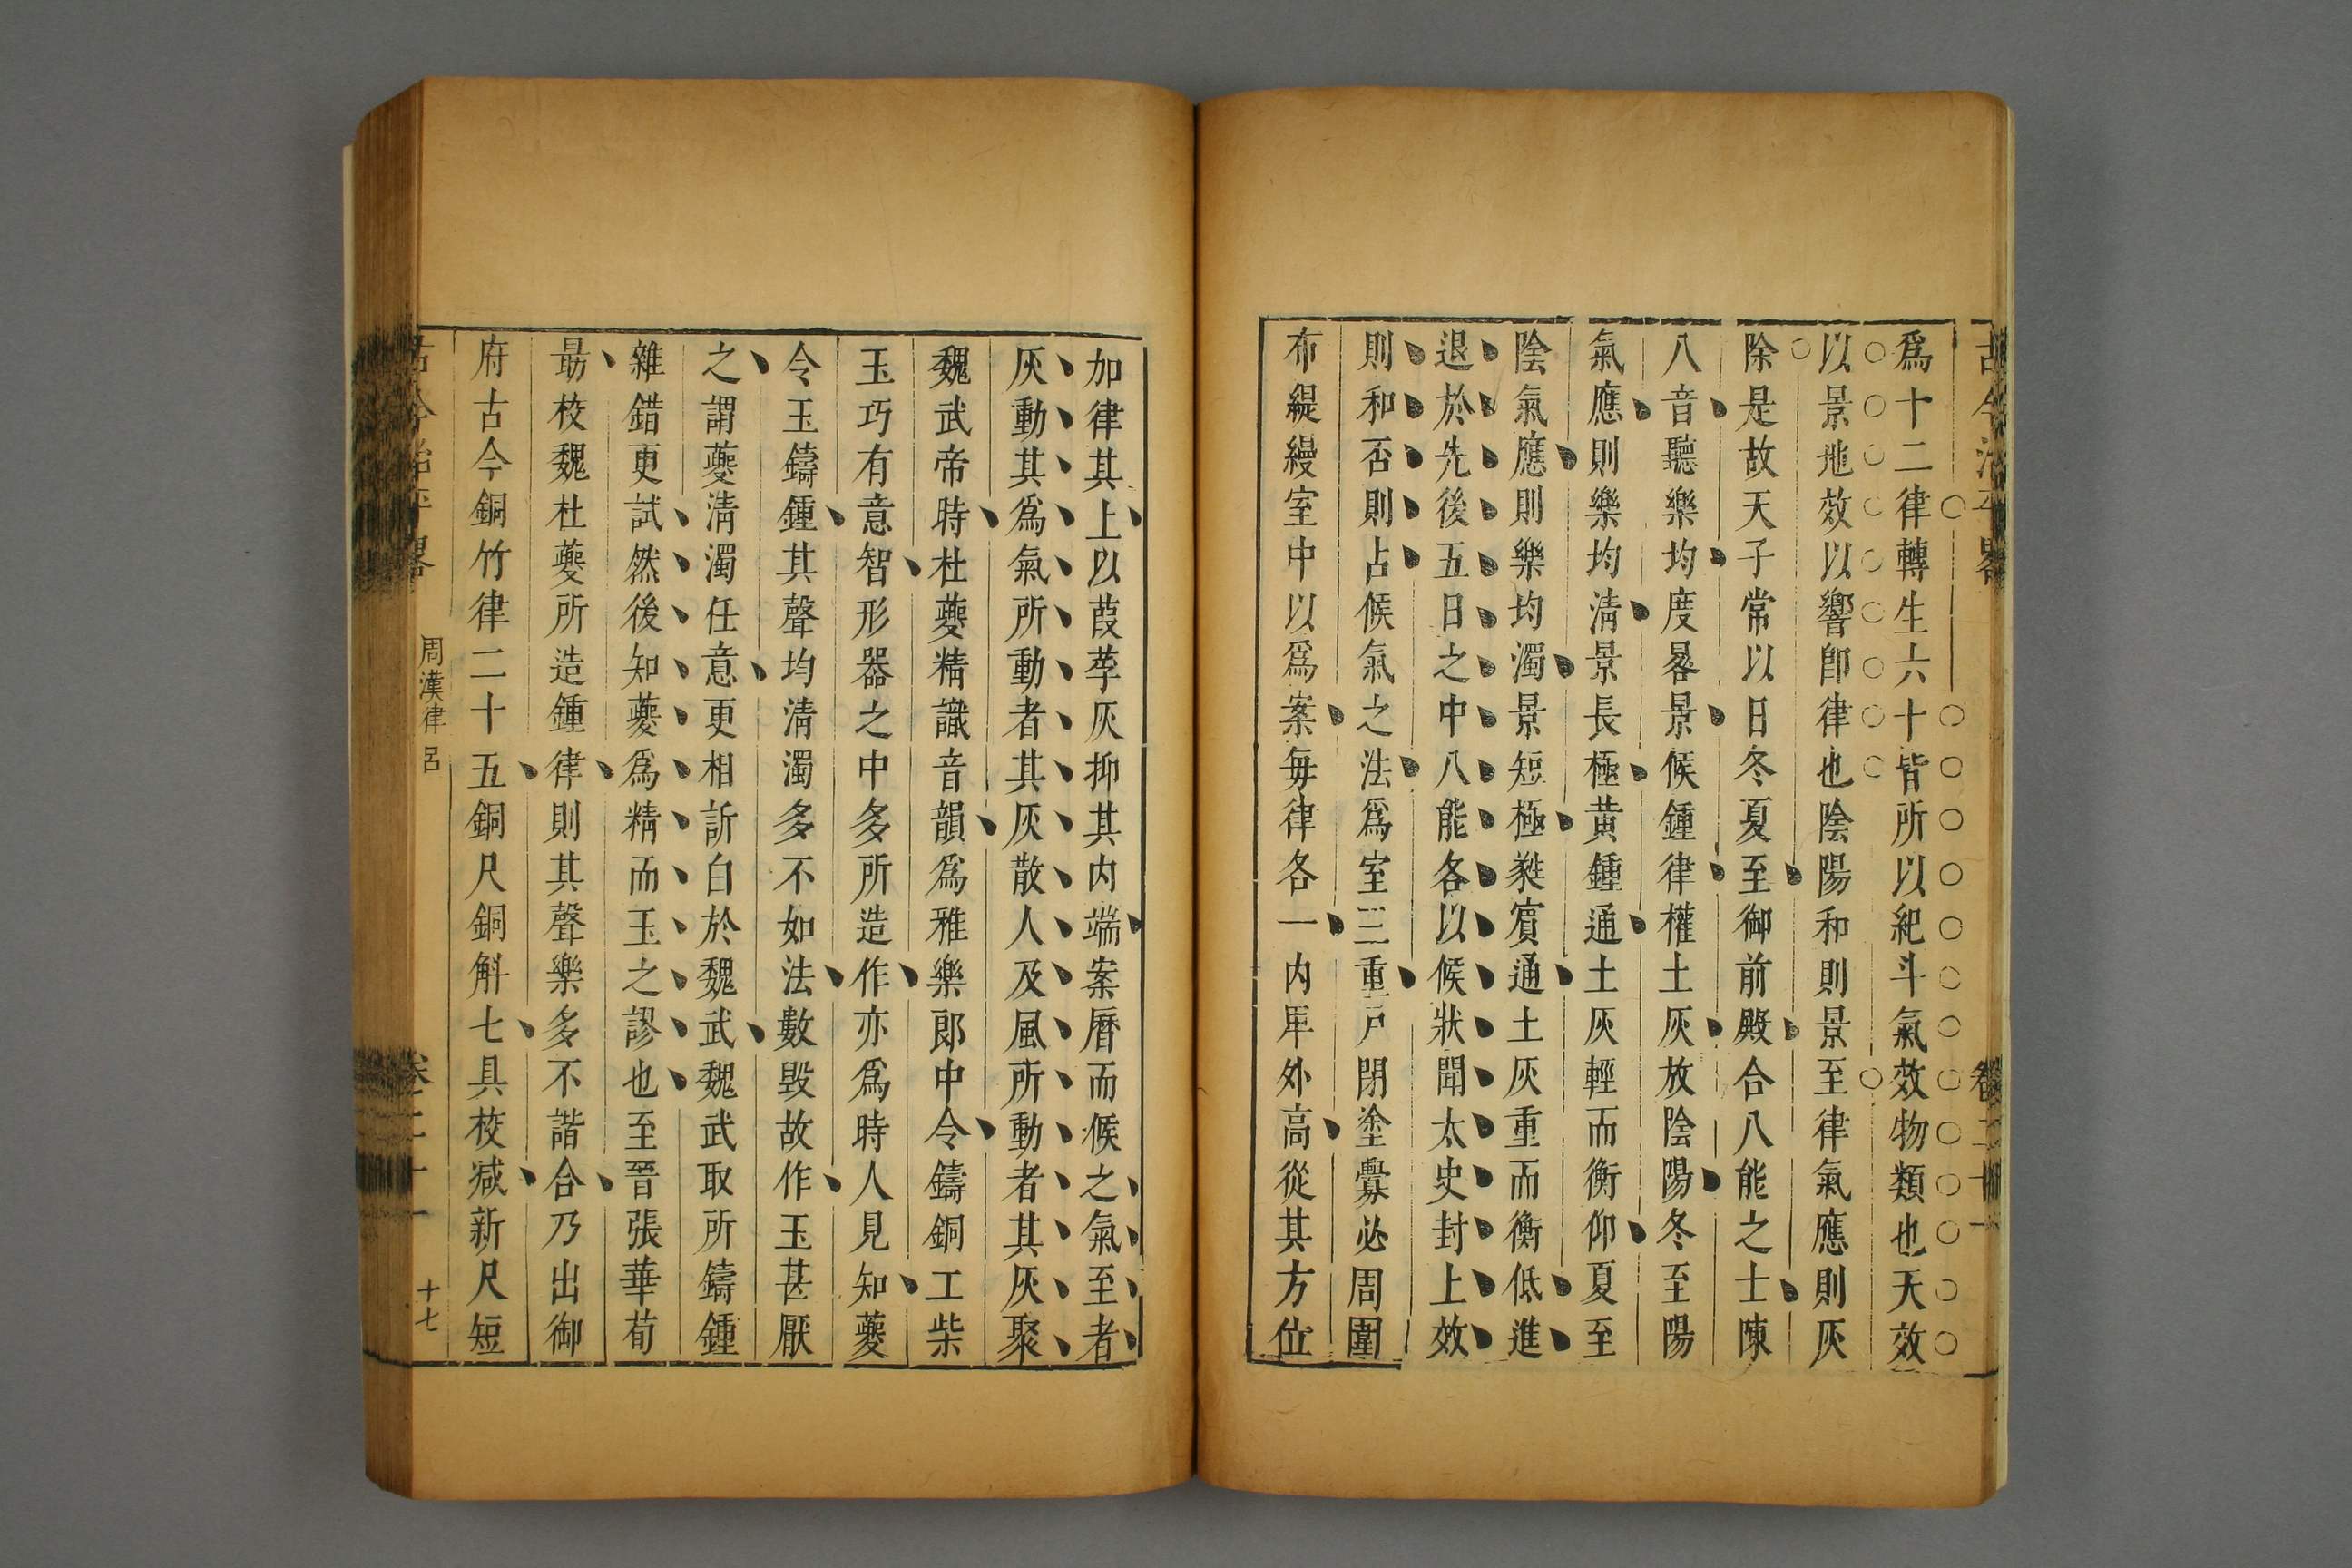 古今治平畧
卷二十一
爲十二律轉生六十皆所以紀斗氣效物類也天效
以景地效以響卽律也陰陽和則景至律氣應則灰
除是故天子常以日冬夏至御前殿合八能之士陳
八音聽樂均度晷景候鍾律權土灰放陰陽冬至陽
氣應則樂均淸景長極黃鍾通土灰輕而衡仰夏至
陰氣應則樂均濁景短極蕤賓通土灰重而衡低進
退於先後五日之中八能各以候狀聞太史封上效
則和否則占候氣之法爲室三重戸閉塗釁必周圍
布緹縵室中以爲案每律各一内庳外高從其方位
加律其上以葭莩灰抑其内端案曆而候之氣至者
灰動其爲氣所動者其灰散人及風所動者其灰聚
魏武帝時杜夔精識音韻爲雅樂郎中令鑄銅工柴
玉巧有意智形器之中多所造作亦爲時人見知夔
令玉鑄鍾其聲均清濁多不如法數毀故作玉甚厭
之謂夔淸濁任意更相訢白於魏武魏武取所鑄鍾
雜錯更試然後知夔爲精而玉之謬也至晉張華荀
勗校魏杜夔所造鍾律則其聲樂多不諧合乃出御
府古今銅竹律二十五銅尺銅斛七具校減新尺短
古今治平畧
周漢律呂
卷二十一
十七